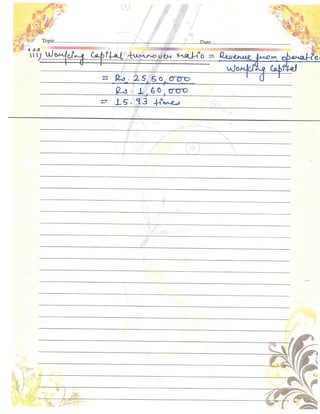 Topic Date
iii) Working Capital turnover ratio = Revenue from operatio
Working Capital
= Rs. 25,50,000
Rs. 1,60,000
= 15.93 times